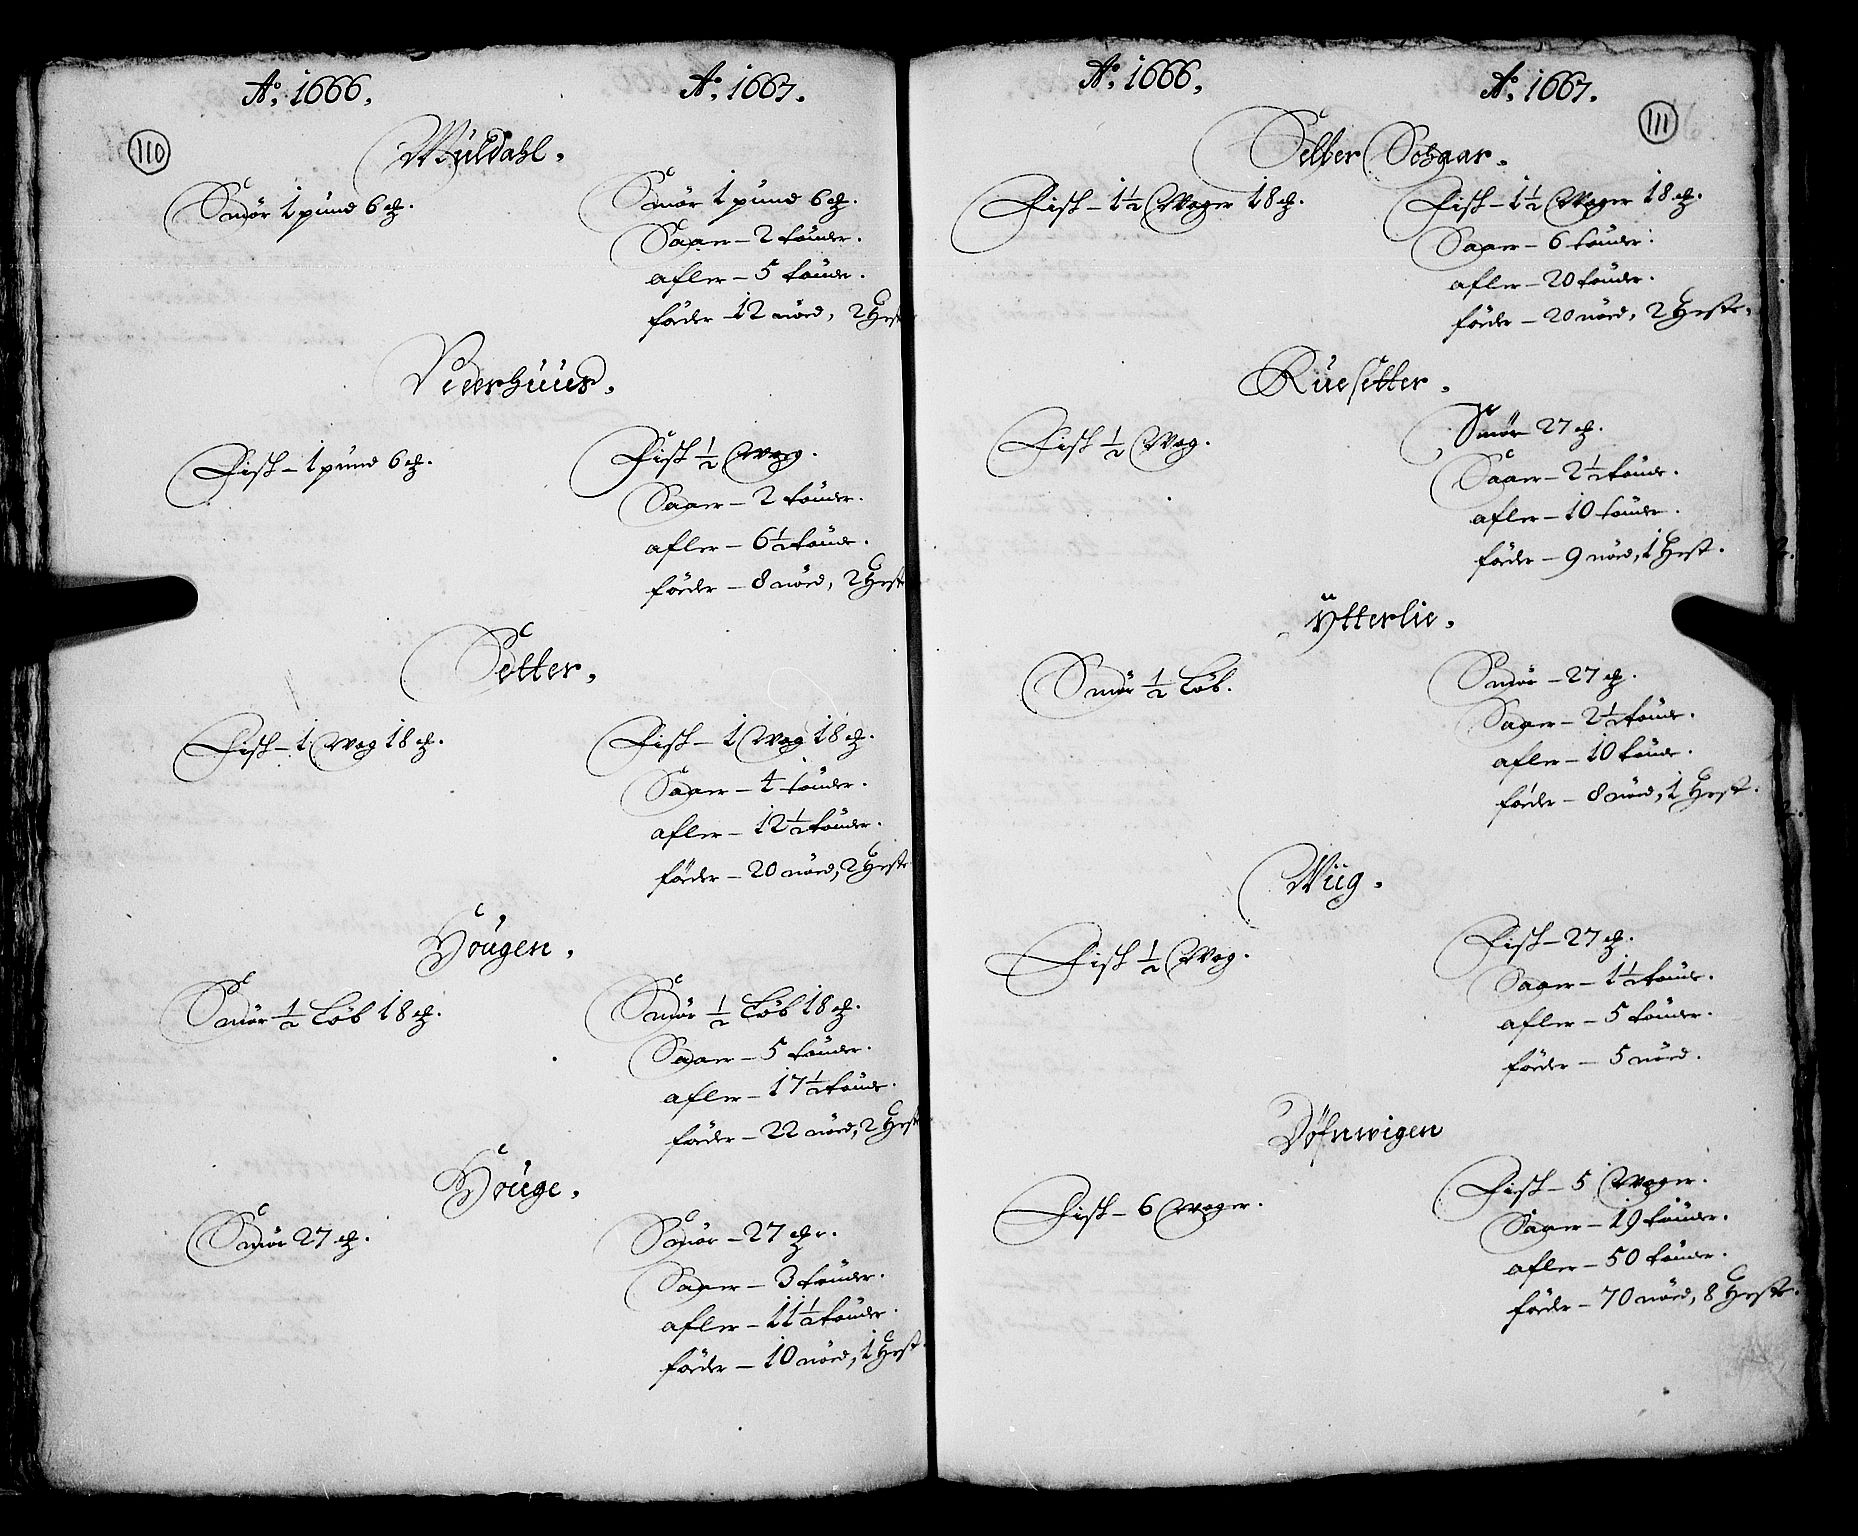 110
Ao. 1666.
Ao. 1667.
Müldahl.
Smör 1 pund 6 ℔.
Smör 1 pund 6 ℔.
Saaer – 2 tönder.
afler – 5 tönde.
föder – 12 nöed, 2 Hest
Vederhuus.
Fisk – 1 pund 6 ℔.
Fisk ½ Wog.
Saaer – 2 tönder.
afler – 6½ tönde.
föder – 8 nöed, 2 Hest
Setter.
Fisk – 1 Wog 18 ℔.
Fisk – 1 Wog 18 ℔.
Saaer – 4 tönder.
afler – 12½ tönder.
föder – 20 nöed, 2 Heste
Hougen.
Smör ½ Löb 18 ℔.
Smör ½ Löb 18 ℔.
Saaer – 5 tönder.
afler – 17½ tönde.
föder – 22 nöed, 2 Hest
Houge.
Smör 27 ℔.
Smör – 27 ℔r.
Saaer – 3 tönder.
afler – 11½ tönder.
föder – 10 nöed, 1 Hest.
111
Ao. 1666.
Ao. 1667.
Selber Schaar.
Fisk – 1½ Woger 18 ℔.
Fisk – 1½ Woger 18 ℔.
Saaer – 6 tönder.
afler – 20 tönder.
föder – 20 nöed, 2 Heste.
Rüesetter.
Fisk ½ Wog.
Smör 27 ℔.
Saaer – 2½ tönde.
afler – 10 tönder.
föder – 9 nöed, 1 Hest.
Ytterlie.
Smör ½ Löb.
Smör – 27 ℔.
Saaer – 2½ tönde.
afler – 10 tönde.
föder – 8 nöed, 1 Hest.
Wiig.
Fisk ½ Wog.
Fisk – 27 ℔.
Saaer – 1½ tönde.
afler – 5 tönder.
föder – 5 nöed.
Döfnwigen
Fisk – 6 Woger.
Fisk – 5 Woger.
Saaer – 19 tönder.
afler – 50 tönder.
föder – 70 nöed, 8 Heste.